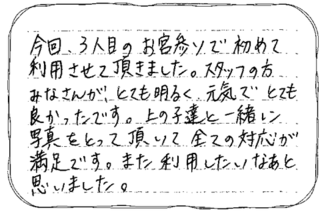 今回、3人目のお宮参りで初めて
利用させて頂きました。スタッフの方
みなさんが、とても明るく元気でとても
良かったです。上の子達と一緒に
写真をとって頂いて全ての対応が
満足です。また利用したいなあと
思いました。